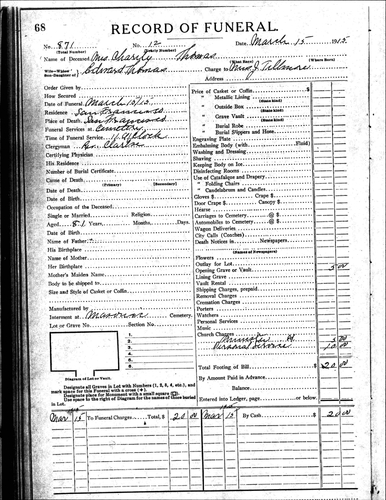 68
RECORD OF FUNERAL.
No. 871 (Total Number)
No. 12 (Yearly Number)
Date, March 15 1915
Name of Deceased Mrs Charity Thomas (What Race) (Where Born)
Wife—Widow Son—Daughter of Edward Thomas
Charge to
Address
Order Given by
How Secured
Date of Funeral March 15/15
Residence San Francisco
Place of Death San Francisco
Funeral Services at Cemetery
Time of Funeral Service 11 O'clock
Clergyman Rev. Clarke
Certifying Physician
His Residence
Number of Burial Certificate
Cause of Death
(Primary) (Secondary)
Date of Death
Date of Birth
Occupation of the Deceased
Single or Married Religion
Aged 81 Years, Months, Days.
Date of Birth
Name of Father
His Birthplace
Name of Mother
Her Birthplace
Mother's Maiden Name
Body to be shipped to
Size and Style of Casket or Coffin
Manufactured by
Interment at Masonic Cemetery.
Lot or Grave No. Section No.
1.
2.
3.
4.
5.
6.
Diagram of Lot or Vault.
Designate all Graves in Lot with Numbers (1, 2, 3, 4, etc.), and
mark space for this Funeral with a cross (+).
Designate place for Monument with a small square (□).
Use space to the right of Diagram for names of those buried
in Lot.
Price of Casket or Coffin $
" Metallic Lining
(State kind)
" Outside Box
(State kind)
" Grave Vault
(State kind)
" Burial Robe
(State kind)
" Burial Slippers and Hose
Engraving Plate
Embalming Body (with Fluid)
Washing and Dressing
Shaving
Keeping Body on Ice
Disinfecting Rooms
Use of Catafalque and Drapery
" Folding Chairs
" Candelabrum and Candles
Gloves $ Crape $
Door Crape $ Canopy $
Hearse
Carriages to Cemetery @ $
Automobiles to Cemetery @ $
Wagon Deliveries
City Calls (Coaches)
Death Notices in Newspapers
(Names of Newspapers)
Flowers
Outlay for Lot
Opening Grave or Vault 5 00
Lining Grave
Vault Rental
Shipping Charges, prepaid
Removal Charges
Cremation Charges
Porters
Watchers
Personal Services
Music
Church Charges
Minister 5 00
Personal Service 10 00
Total Footing of Bill $ 20 00
By Amount Paid in Advance
Balance
Entered into Ledger, page or below.
Mar 15 To Funeral Charges Total, $ 20 00
Mar 15 By Cash $ 20 00